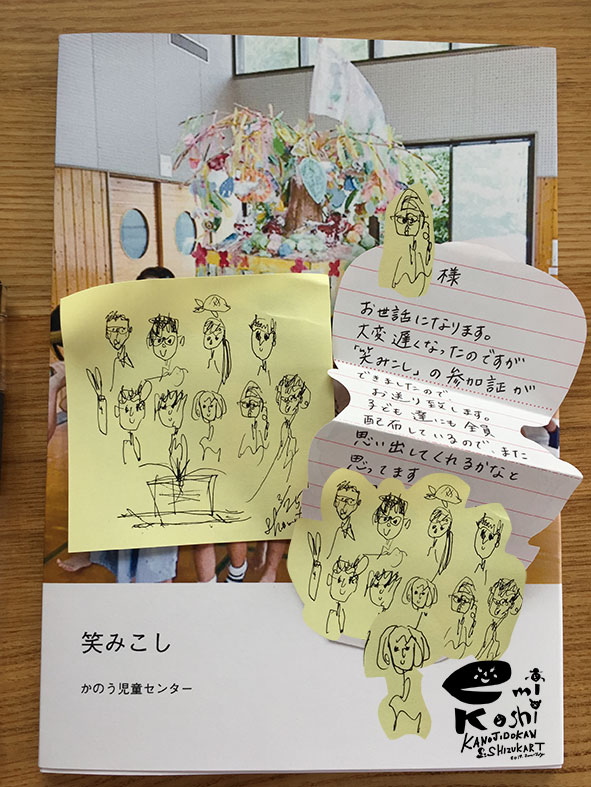 様
お世話になります。
大変遅くなったのですが
「笑みこし」の参加証が
できましたので
お送り致します。
子ども達にも全員
配布しているので、また
思い出してくれるかなと
思ってます
3/25
笑みこし
かのう児童センター
emi
Koshi
KANOJIDOKAN
SHIZUKART
2017.